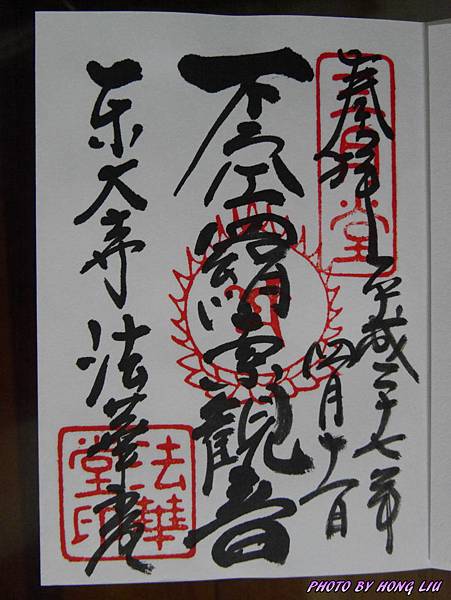 奉拝
平成二十七年
四月十一日
不空羂索観音
東大寺法華堂
三月堂
法華堂印
PHOTO BY HONG LIU